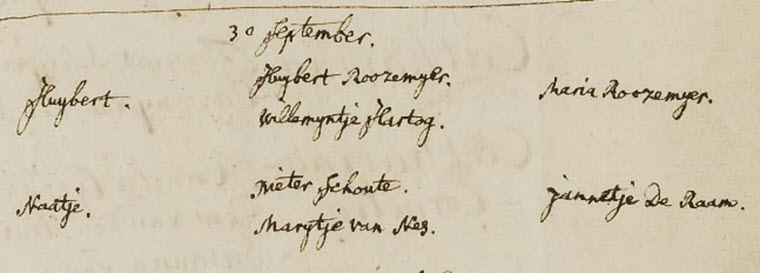 30 September.
Huybert. Huybert Roozemyer. Maria Roozemyer.
Willemyntje Hartog.
Naatje. Pieter Schoute. Jannetje De Raam.
Marytje van Nes.